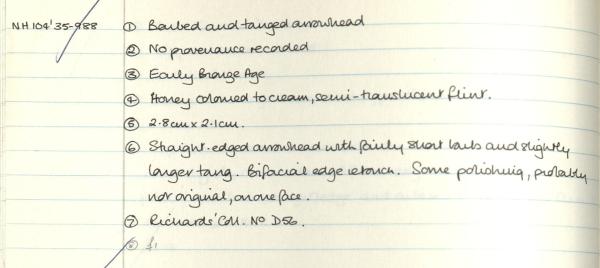 NH 104'35-988 ① Barbed and tanged arrowhead
② No provenance recorded
③ Early Bronze Age
④ Honey coloured to cream, semi-translucent flint.
⑤ 2.8cm x 2.1cm.
⑥ Straight-edged arrowhead with fairly short barbs and slightly
longer tang. Bifacial edge retouch. Some polishing, probably
not original, on one face.
⑦ Richards' Coll. No D56.
⑧